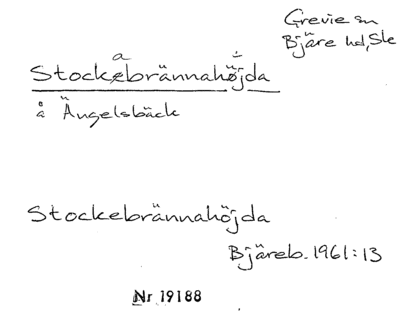 Grevie sn
Bjäre hd, Sk
Stockabrännahöjda
å Ängelsbäck
Stockebrännahöjda
Bjäreb. 1961:13
Nr 19188